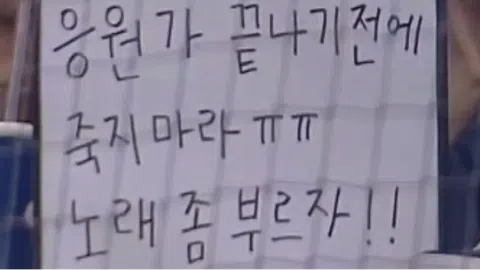 응원가 끝나기전에
죽지마라 ㅠㅠ
노래 좀 부르자!!